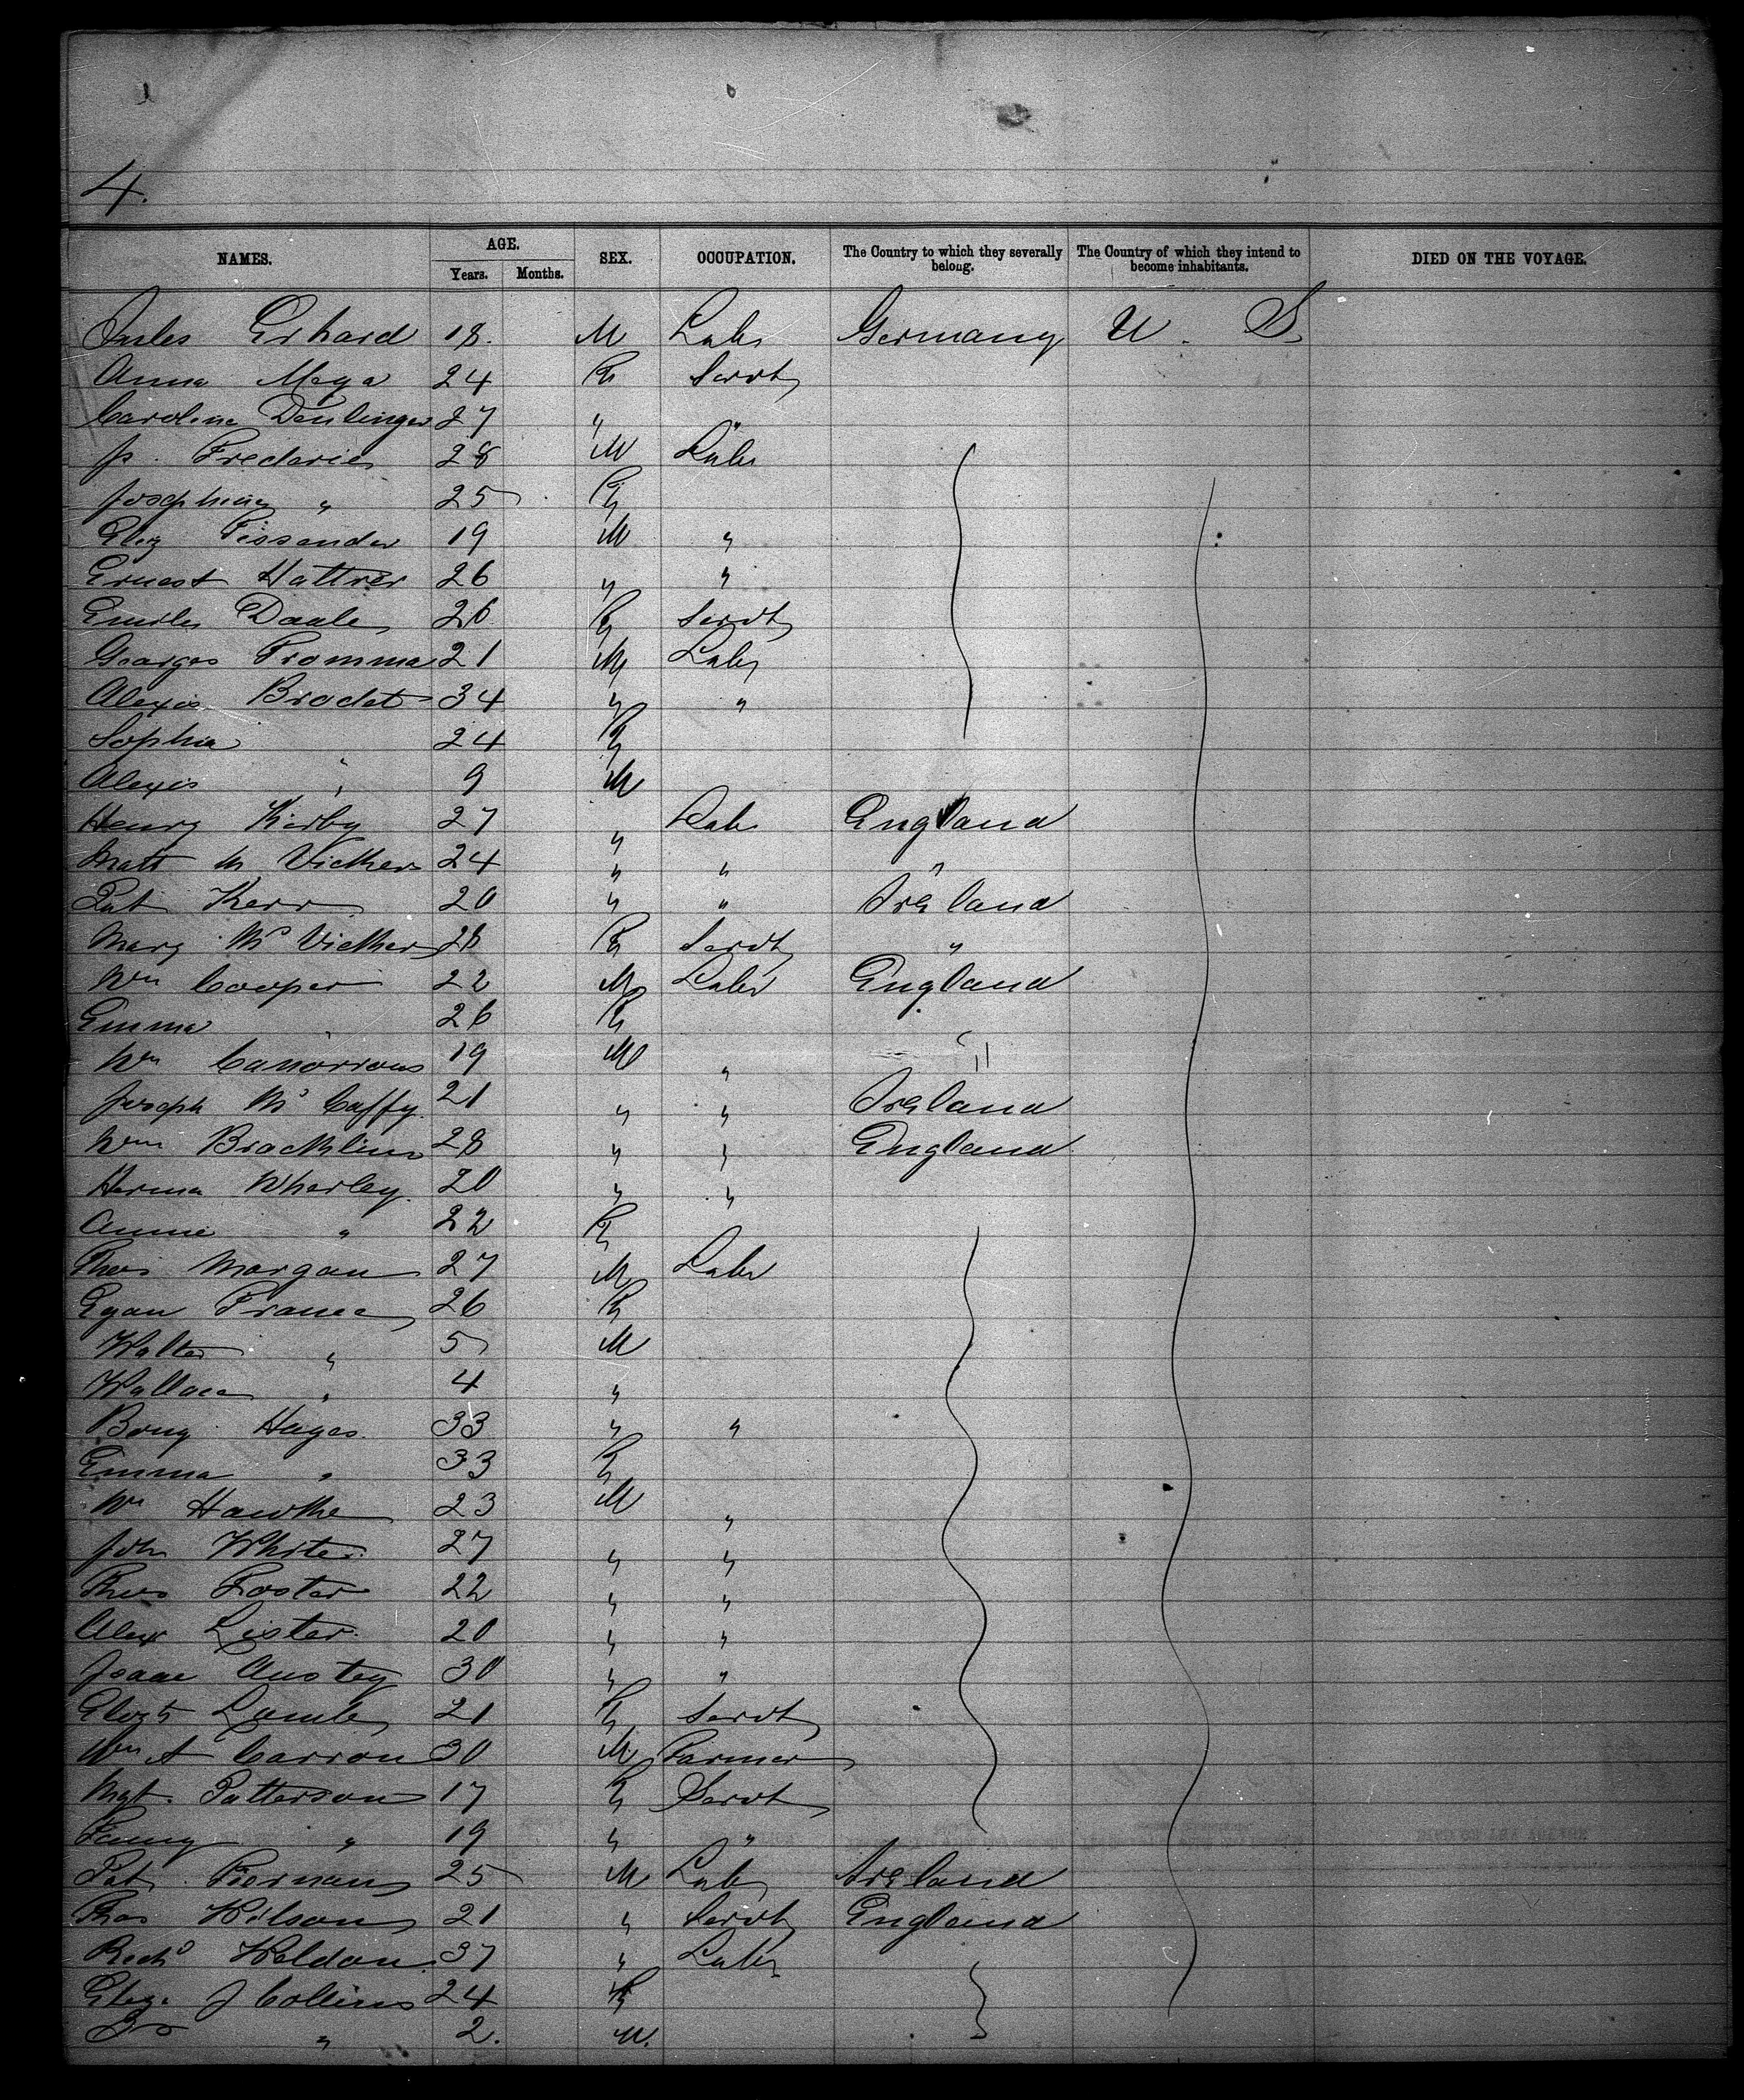 4.
NAMES. AGE. Years. Months. SEX. OCCUPATION. The Country to which they severally belong. The Country of which they intend to become inhabitants. DIED ON THE VOYAGE.
Jules Erhard 18. M Labr Germany U. S.
Anna Mega 24 F Servt
Caroline Denlinger 27 " "
Js. Frederic 28 M Labr
Josephine " 25 F
19 M "
Ernest Hattrer 26 " "
Emile Daale 26 F Servt
Georges Fromma 21 M Labr
Alexis Bradet 34 " "
Sophia 24 F
Alexis " 9 M
Henry Kirby 27 " Labr England
Matt Mc Vicker 24 " " "
Pat Kerr 20 " " Ireland
Marg Mc Vicker 28 F Servt "
Wm Cooper 22 M Labr England
Emma " 26 F "
Wm 19 M " "
Joseph Mc Caffy. 21 " " Ireland
Wm Bracklin 28 " " England
Herma Wherley. 20 " "
Annie " 22 F
Thos Morgan 27 M Labr
Egan France 26 F
Walter " 5 M
Wallace " 4 "
Benj Hayes. 33 " "
Emma " 33 F
Wm Hawke 23 M "
John White. 27 " "
Thos Foster 22 " "
Alex Lister. 20 " "
Isaac Anstey 30 " "
Elizth Lamb 21 F Servt
Wm A Carron 30 M Farmer
Mgt. Patterson 17 F Servt
Fanny " 19 " "
Pat Kiernan 25 M Labr Ireland
Thos Wilson 21 " Servt England
Richd Weldon. 37 " Labr
Eliz. J Collins 24 F
Jo " 2. M.